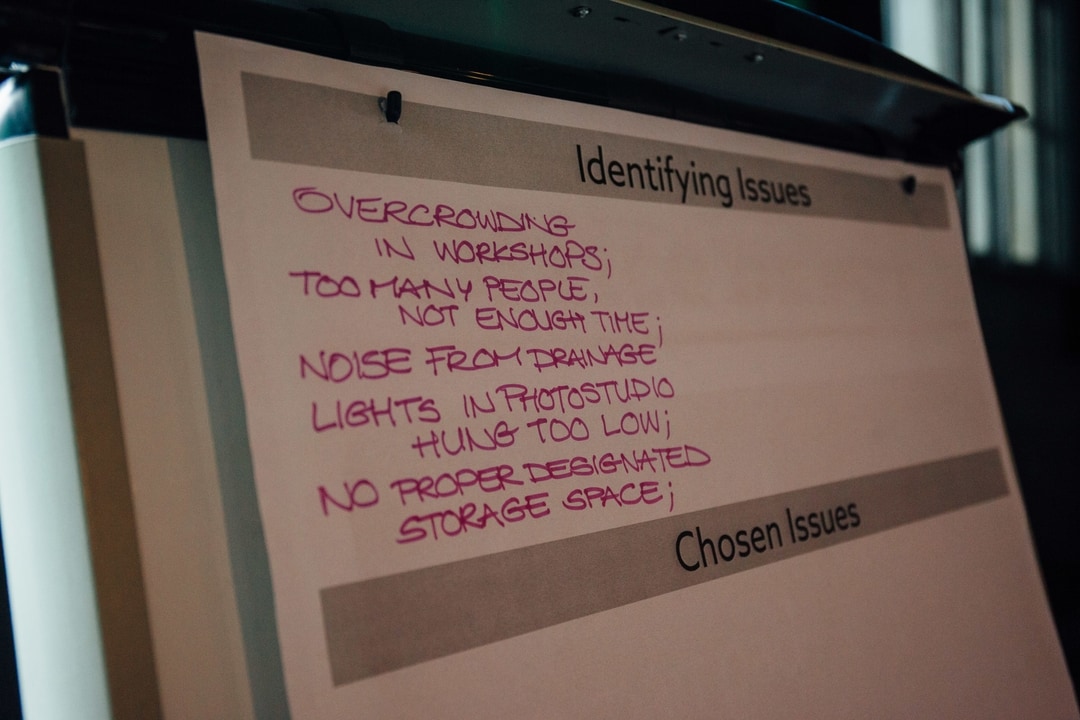 Identifying Issues
OVERCROWDING
IN WORKSHOPS;
TOO MANY PEOPLE,
NOT ENOUGH TIME;
NOISE FROM DRAINAGE
LIGHTS IN PHOTOSTUDIO
HUNG TOO LOW;
NO PROPER DESIGNATED
STORAGE SPACE;
Chosen Issues